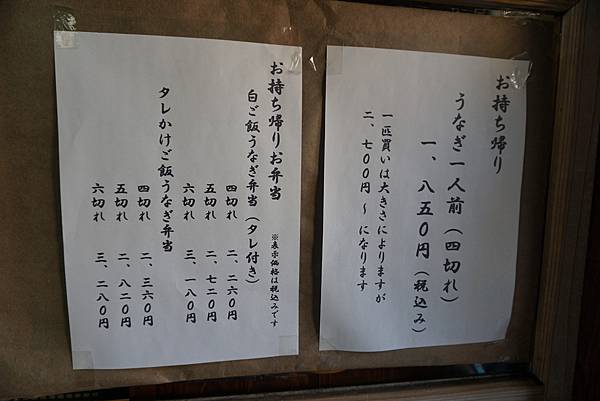 お持ち帰り
うなぎ一人前(四切れ)
一、八五〇円(税込み)
一匹買いは大きさによりますが
二、七〇〇円~になります
お持ち帰りお弁当
※表示価格は税込みです
白ご飯うなぎ弁当(タレ付き)
四切れ 二、二六〇円
五切れ 二、七二〇円
六切れ 三、一八〇円
タレかけご飯うなぎ弁当
四切れ 二、三六〇円
五切れ 二、八二〇円
六切れ 三、二八〇円